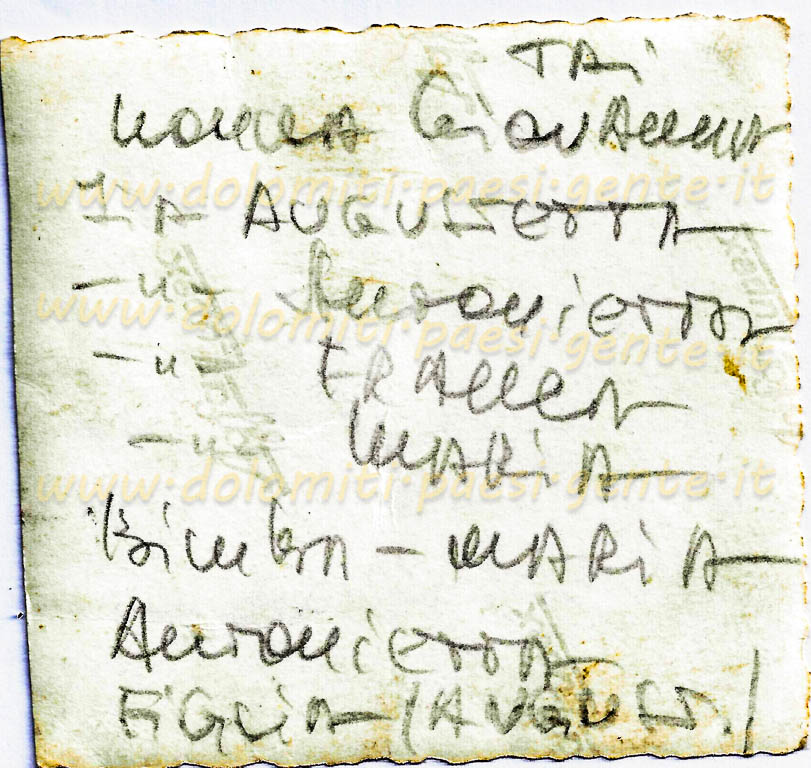 TAi
NONNA GiOVANNA
www.dolomiti.paesi.gente.it
AUGUSTETTA
-"- ANTONiETTA
www.dolomiti.paesi.gente.it
-"- FRANCA
-"- MARiA
www.dolomiti.paesi.gente.it
BiMBA - MARiA
ANTONiETTA
FiGLiA (AUGUST.)